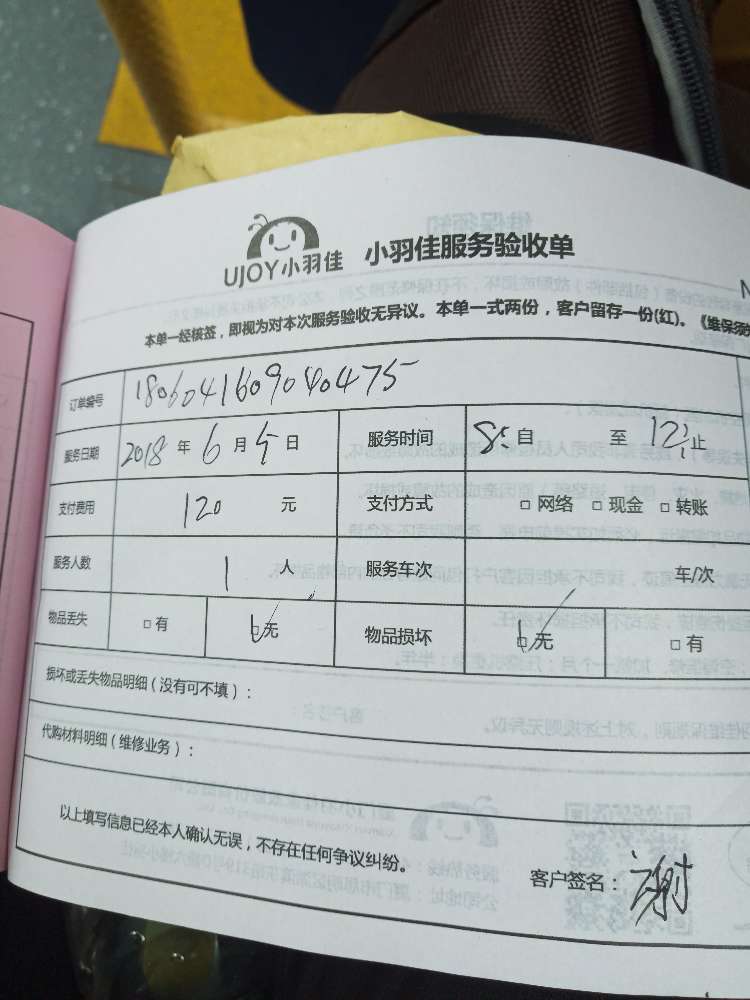 UJOY小羽佳 小羽佳服务验收单
本单一经核签，即视为对本次服务验收无异议。本单一式两份，客户留存一份(红)。《维保须
订单编号 1806041609040475
服务日期 2018 年 6 月 5 日 服务时间 8: 自 至 12: 止
支付费用 120 元 支付方式 □ 网络 □ 现金 □ 转账
服务人数 1 人 服务车次 车/次
物品丢失 □ 有 □ 无 物品损坏 □ 无 □ 有
损坏或丢失物品明细（没有可不填）：
代购材料明细（维修业务）：
以上填写信息已经本人确认无误，不存在任何争议纠纷。
客户签名： 谢